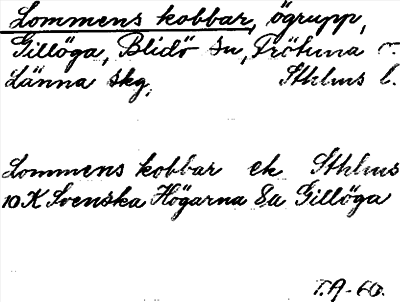 Lommens kobbar, ögrupp,
Gillöga, Blidö sn, Frötuna o.
Länna skg, Sthlms l.
Lommens kobbar ek Sthlms
10 K Svenska Högarna 8a Gillöga
T.A. 60.